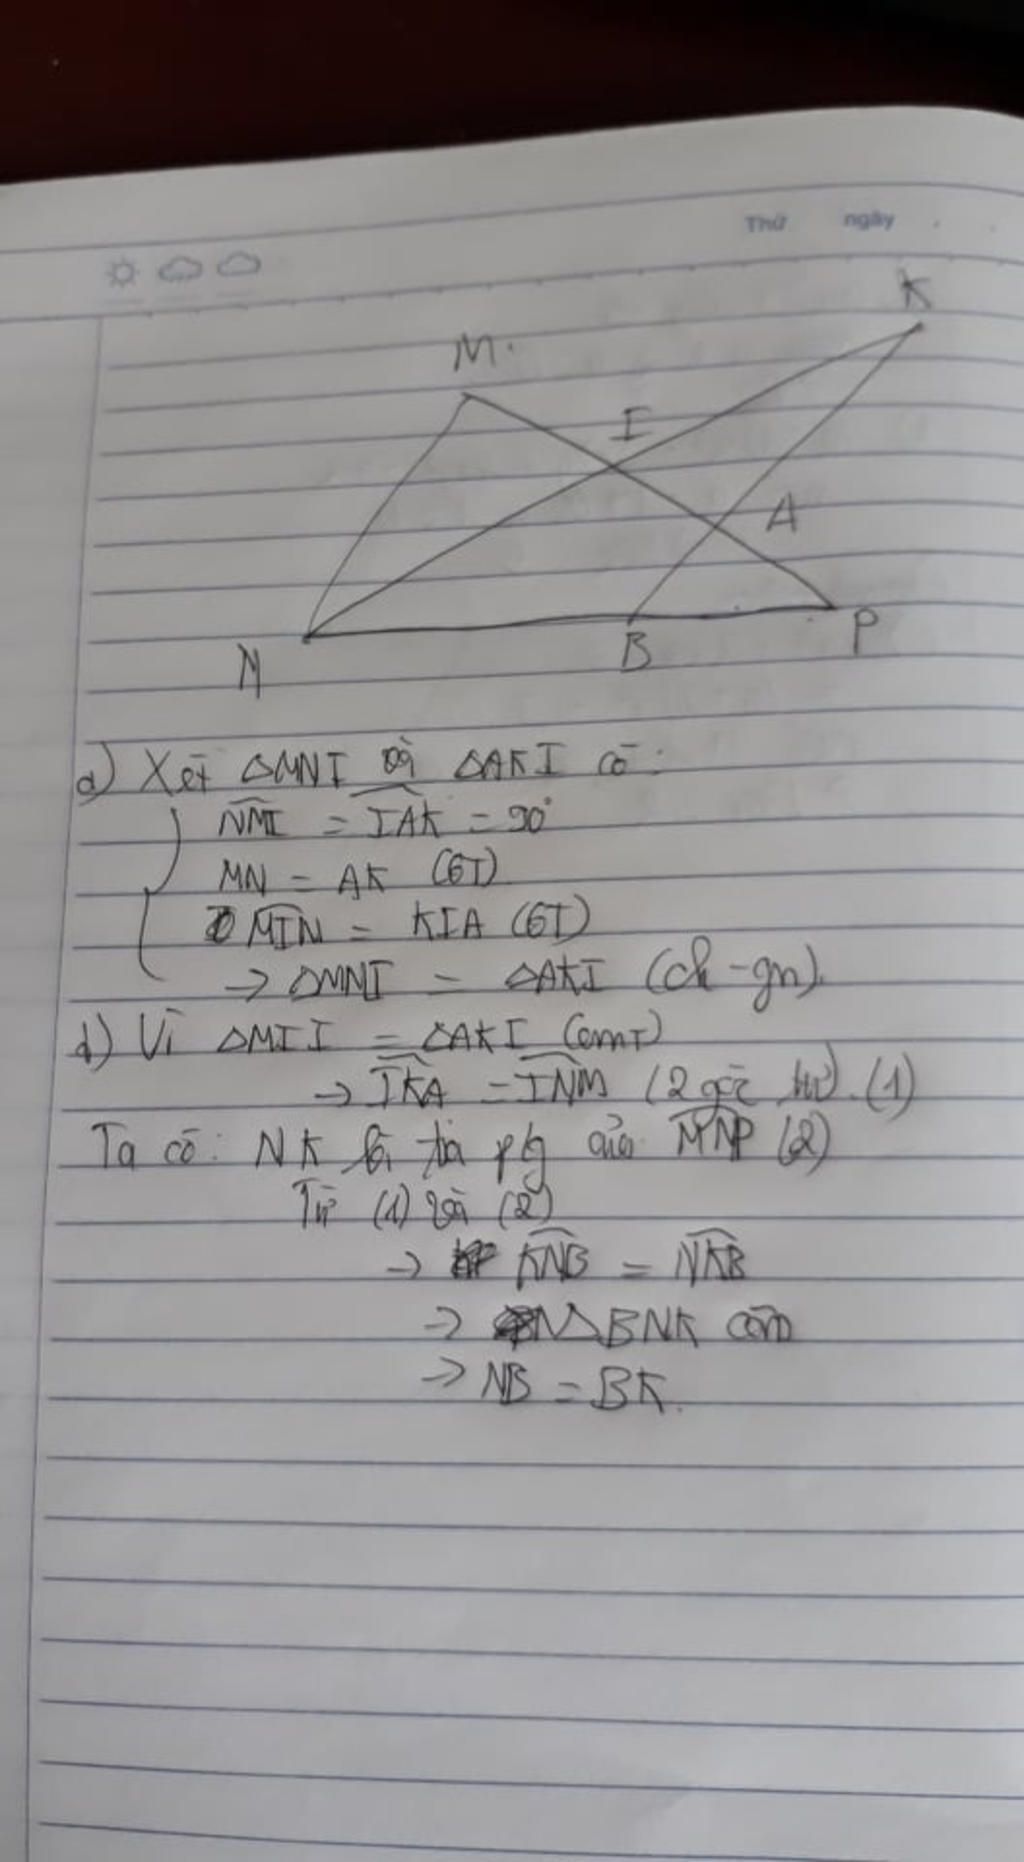 Thứ ngày
K
M
I
A
N
B
P
a) Xét ΔMNI và ΔAKI có:
NMI = IAK = 90°
MN = AK (GT)
MIN = KIA (GT)
→ ΔMNI = ΔAKI (ch-gn).
b) Vì ΔMII = ΔAKI (cmt)
→ IKA = INM (2 góc tư). (1)
Ta có: NK là tia pg của MNP (2)
Từ (1) và (2)
→ KNB = NKB
→ ΔBNK cân
→ NB = BK.